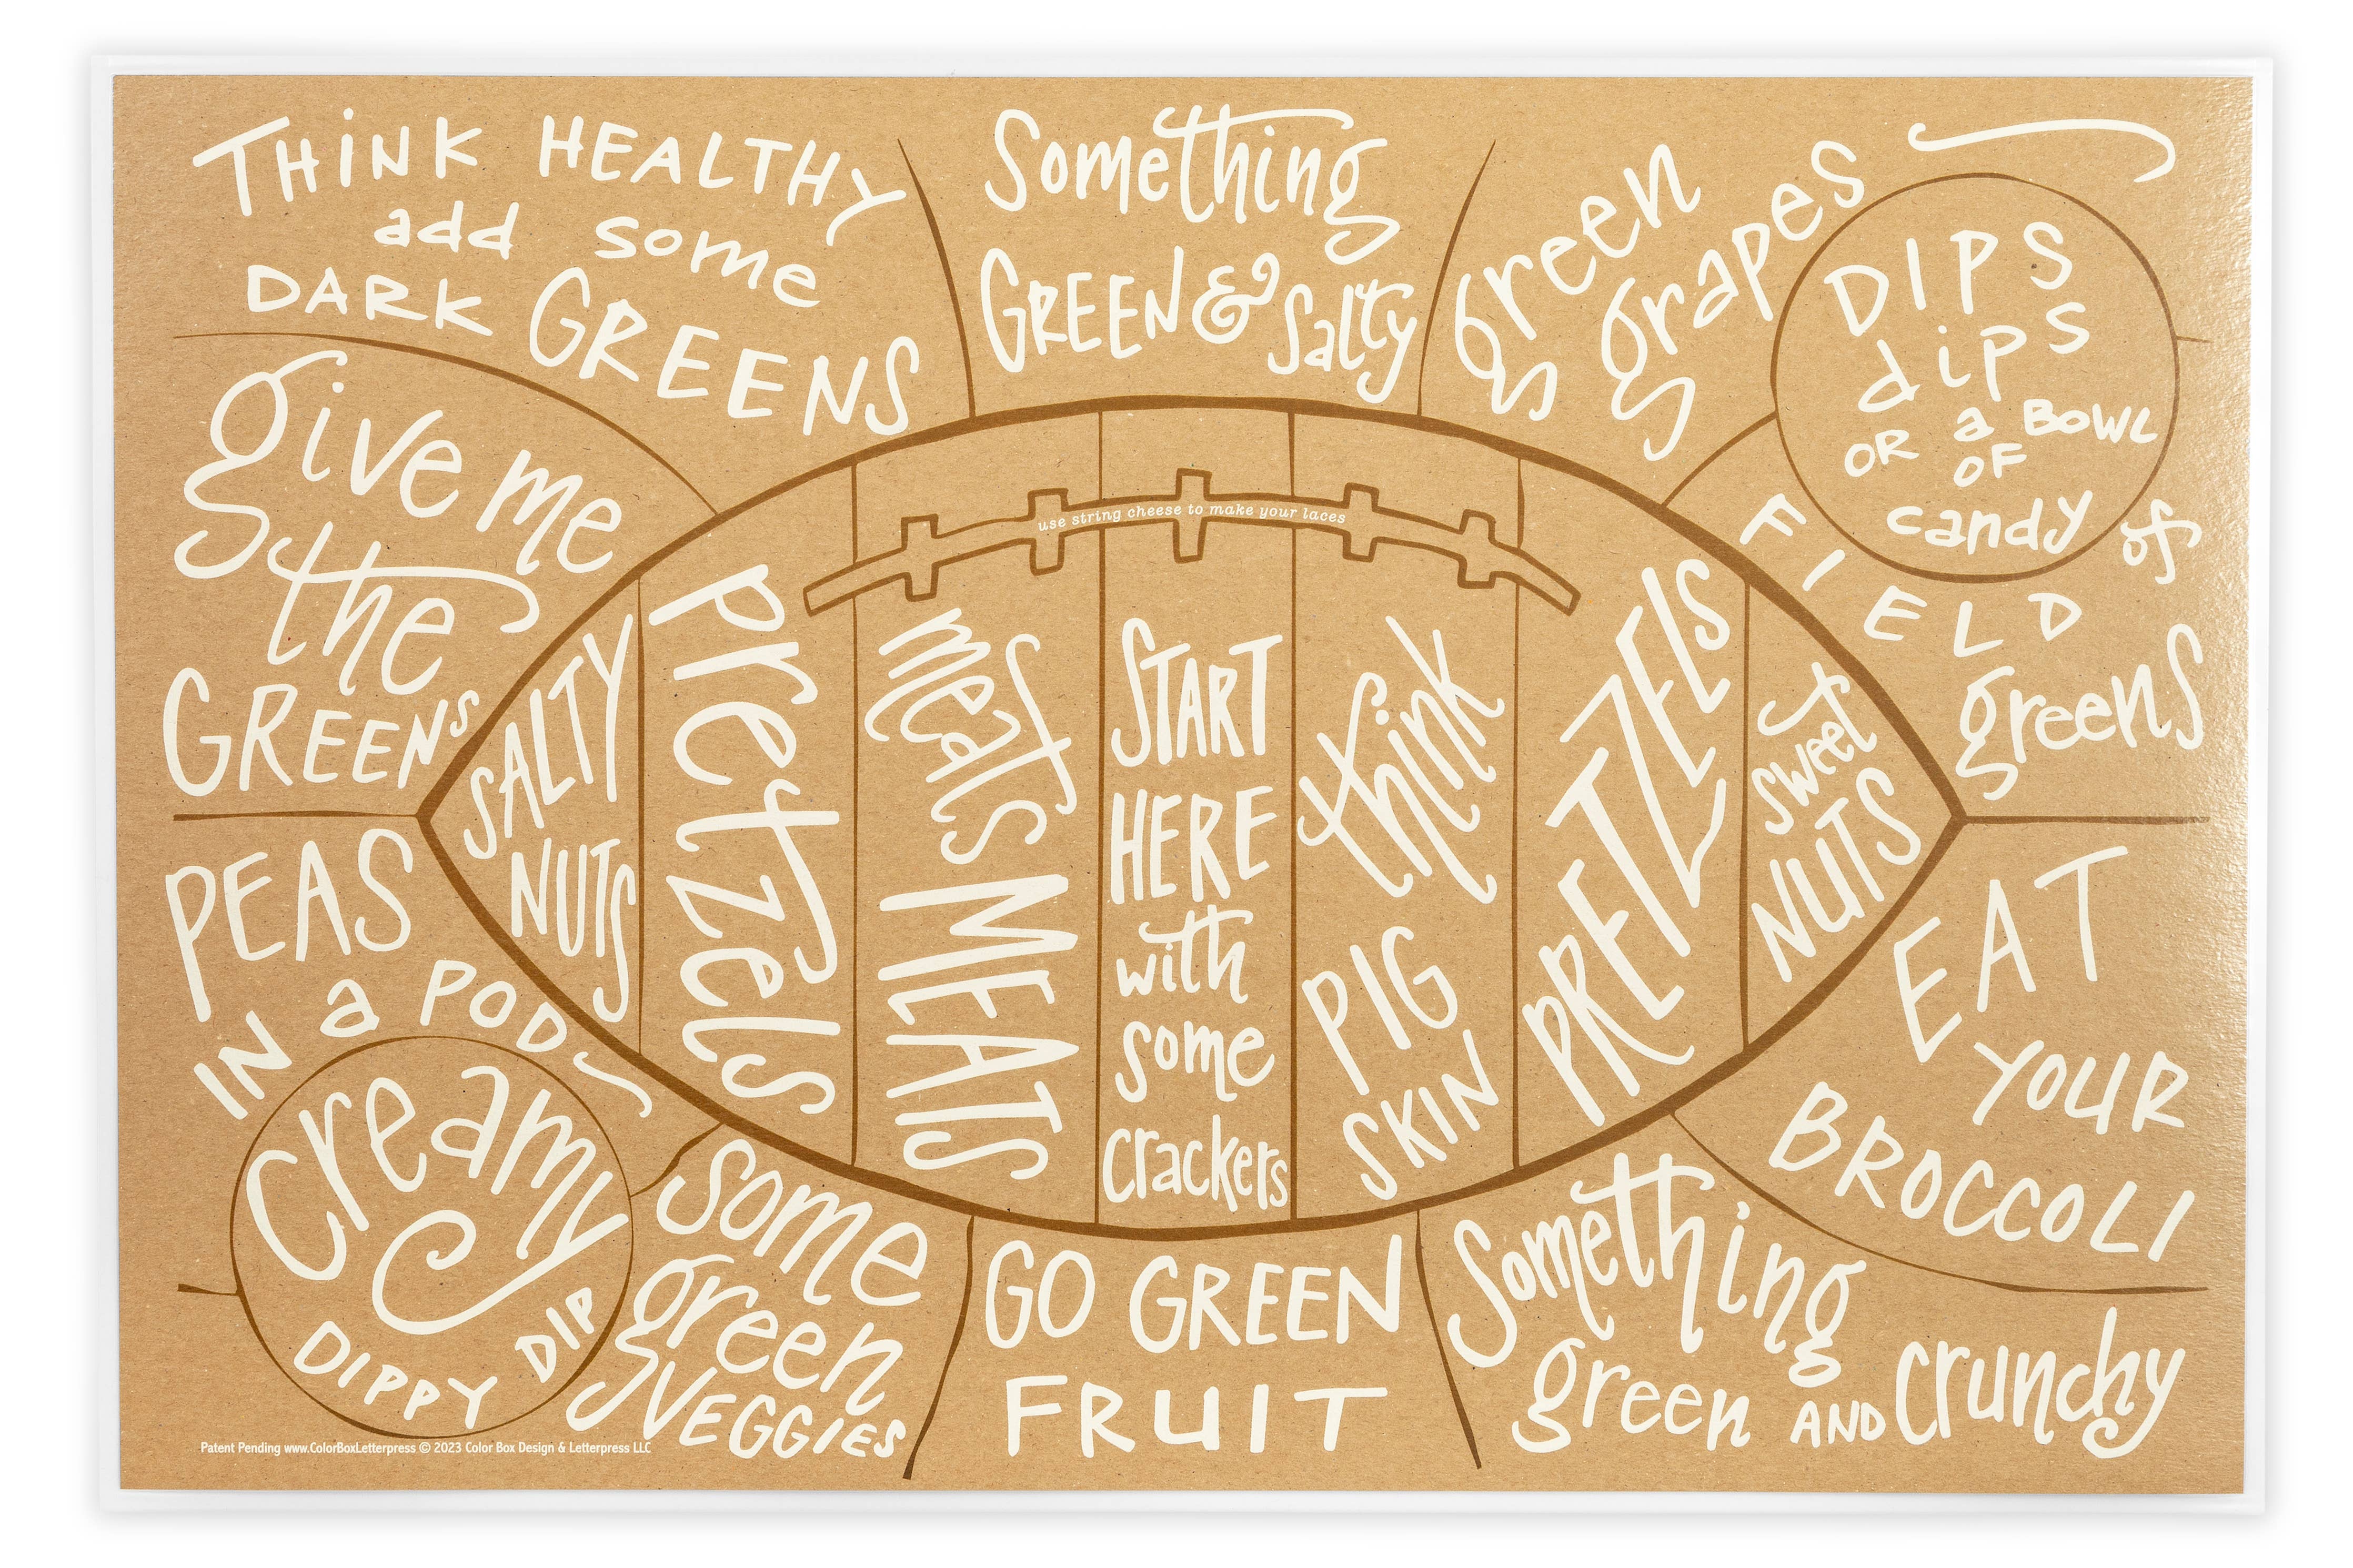 THiNK HEALTHY
add some
DARK GREENS
Something
GREEN & Salty
green
grapes
DIPS
dips
OR a BOWL
OF
candy
give me
the
GREENS
use string cheese to make your laces
FIELD of
greens
SALTY
NUTS
Pretzels
meats
MEATS
START
HERE
with
some
crackers
think
PIG
SKIN
PRETZELS
sweet
NUTS
PEAS
IN a POD
EAT
YOUR
BROCCOLI
Creamy
DIPPY DIP
some
green
VEGGIES
GO GREEN
FRUIT
Something
green AND crunchy
Patent Pending www.ColorBoxLetterpress © 2023 Color Box Design & Letterpress LLC